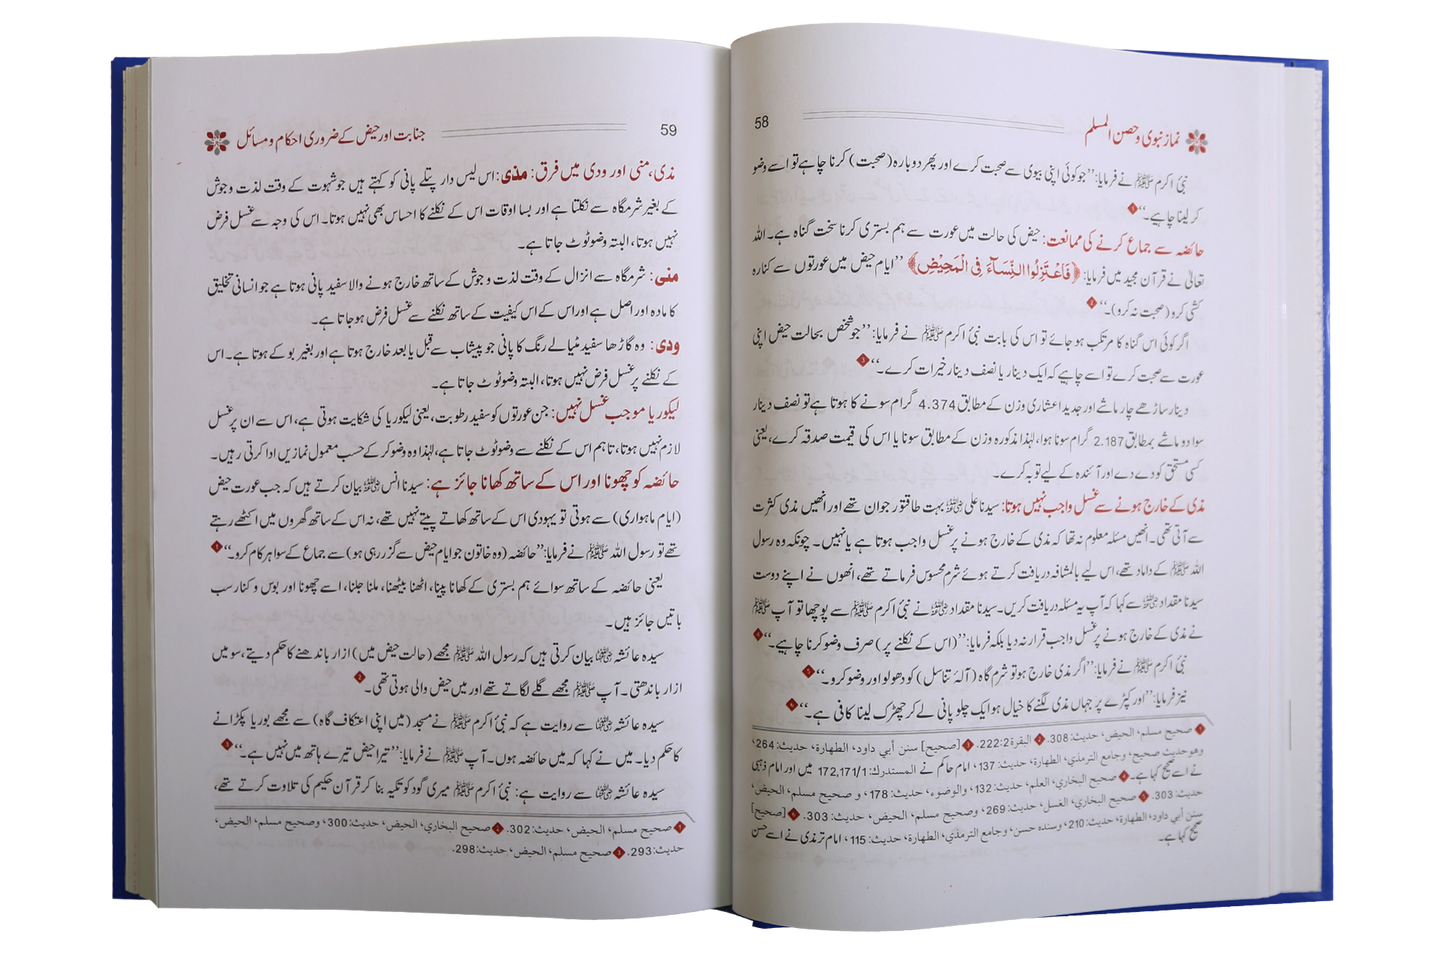 نماز نبوی و حصن المسلم
58
نبی اکرم ﷺ نے فرمایا: ’’جو کوئی اپنی بیوی سے صحبت کرے اور پھر دوبارہ (صحبت) کرنا چاہے تو اسے وضو
کر لینا چاہیے۔‘‘
حائضہ سے جماع کرنے کی ممانعت: حیض کی حالت میں عورت سے ہم بستری کرنا سخت گناہ ہے۔ اللہ
تعالیٰ نے قرآن مجید میں فرمایا: ﴿فَاعْتَزِلُوا النِّسَآءَ فِی الْمَحِیْضِ﴾ ’’ایام حیض میں عورتوں سے کنارہ
کشی کرو (صحبت نہ کرو)۔‘‘
اگر کوئی اس گناہ کا مرتکب ہو جائے تو اس کی بابت نبی اکرم ﷺ نے فرمایا: ’’جو شخص بحالت حیض اپنی
عورت سے صحبت کرے تو اسے چاہیے کہ ایک دینار یا نصف دینار خیرات کرے۔‘‘
دینار ساڑھے چار ماشے اور جدید اعشاری وزن کے مطابق 4.374 گرام سونے کا ہوتا ہے تو نصف دینار
سوا دو ماشے بمطابق 2.187 گرام سونا ہوا، لہٰذا مذکورہ وزن کے مطابق سونا یا اس کی قیمت صدقہ کرے، یعنی
کسی مستحق کو دے دے اور آئندہ کے لیے توبہ کرے۔
مذی کے خارج ہونے سے غسل واجب نہیں ہوتا: سیدنا علی رضی اللہ عنہ بہت طاقتور جوان تھے اور انھیں مذی کثرت
سے آتی تھی۔ انھیں مسئلہ معلوم نہ تھا کہ مذی کے خارج ہونے پر غسل واجب ہوتا ہے یا نہیں۔ چونکہ وہ رسول
اللہ ﷺ کے داماد تھے، اس لیے بالمشافہ دریافت کرتے ہوئے شرم محسوس فرماتے تھے، انھوں نے اپنے دوست
سیدنا مقداد رضی اللہ عنہ سے کہا کہ آپ یہ مسئلہ دریافت کریں۔ سیدنا مقداد رضی اللہ عنہ نے نبی اکرم ﷺ سے پوچھا تو آپ ﷺ
نے مذی کے خارج ہونے پر غسل واجب قرار نہ دیا بلکہ فرمایا: ’’(اس کے نکلنے پر) صرف وضو کرنا چاہیے۔‘‘
نبی اکرم ﷺ نے فرمایا: ’’اگر مذی خارج ہو تو شرم گاہ (آلۂ تناسل) کو دھولو اور وضو کرو۔‘‘
نیز فرمایا: ’’اور کپڑے پر جہاں مذی لگنے کا خیال ہو ایک چلو پانی لے کر چھڑک لینا کافی ہے۔‘‘
صحيح مسلم، الحيض، حديث: 308. البقرة 222:2. [صحيح] سنن أبي داود، الطهارة، حديث: 264،
وهو حديث صحيح، وجامع الترمذي، الطهارة، حديث: 137، امام حاکم نے المستدرك: 172,171/1 میں اور امام ذہبی
نے اسے صحیح کہا ہے۔ صحيح البخاري، العلم، حديث: 132، والوضوء، حديث: 178، و صحيح مسلم، الحيض،
حديث: 303. صحيح البخاري، الغسل، حديث: 269، وصحيح مسلم، الحيض، حديث: 303. [صحيح]
سنن أبي داود، الطهارة، حديث: 210، وسنده حسن، وجامع الترمذي، الطهارة، حديث: 115، امام ترمذی نے اسے حسن
صحیح کہا ہے۔
59
جنابت اور حیض کے ضروری احکام و مسائل
مذی، منی اور ودی میں فرق: مذی: اس لیس دار پتلے پانی کو کہتے ہیں جو شہوت کے وقت لذت و جوش
کے بغیر شرمگاہ سے نکلتا ہے اور بسا اوقات اس کے نکلنے کا احساس بھی نہیں ہوتا۔ اس کی وجہ سے غسل فرض
نہیں ہوتا، البتہ وضو ٹوٹ جاتا ہے۔
منی: شرمگاہ سے انزال کے وقت لذت و جوش کے ساتھ خارج ہونے والا سفید پانی ہوتا ہے جو انسانی تخلیق
کا مادہ اور اصل ہے اور اس کے اس کیفیت کے ساتھ نکلنے سے غسل فرض ہو جاتا ہے۔
ودی: وہ گاڑھا سفید مٹیالے رنگ کا پانی جو پیشاب سے قبل یا بعد خارج ہوتا ہے اور بغیر بو کے ہوتا ہے۔ اس
کے نکلنے پر غسل فرض نہیں ہوتا، البتہ وضو ٹوٹ جاتا ہے۔
لیکوریا موجب غسل نہیں: جن عورتوں کو سفید رطوبت، یعنی لیکوریا کی شکایت ہوتی ہے، اس سے ان پر غسل
لازم نہیں ہوتا، تاہم اس کے نکلنے سے وضو ٹوٹ جاتا ہے، لہٰذا وہ وضو کر کے حسب معمول نمازیں ادا کرتی رہیں۔
حائضہ کو چھونا اور اس کے ساتھ کھانا جائز ہے: سیدنا انس رضی اللہ عنہ بیان کرتے ہیں کہ جب عورت حیض
(ایام ماہواری) سے ہوتی تو یہودی اس کے ساتھ کھاتے پیتے نہیں تھے، نہ اس کے ساتھ گھروں میں اکٹھے رہتے
تھے تو رسول اللہ ﷺ نے فرمایا: ’’حائضہ (وہ خاتون جو ایام حیض سے گزر رہی ہو) سے جماع کے سوا ہر کام کرو۔‘‘
یعنی حائضہ کے ساتھ سوائے ہم بستری کے کھانا پینا، اٹھنا بیٹھنا، ملنا جلنا، اسے چھونا اور بوس و کنار سب
باتیں جائز ہیں۔
سیدہ عائشہ رضی اللہ عنہا بیان کرتی ہیں کہ رسول اللہ ﷺ مجھے (حالت حیض میں) ازار باندھنے کا حکم دیتے، سو میں
ازار باندھتی۔ آپ ﷺ مجھے گلے لگاتے تھے اور میں حیض والی ہوتی تھی۔
سیدہ عائشہ رضی اللہ عنہا سے روایت ہے کہ نبی اکرم ﷺ نے مسجد (میں اپنی اعتکاف گاہ) سے مجھے بوریا پکڑانے
کا حکم دیا۔ میں نے کہا کہ میں حائضہ ہوں۔ آپ ﷺ نے فرمایا: ’’تیرا حیض تیرے ہاتھ میں نہیں ہے۔‘‘
سیدہ عائشہ رضی اللہ عنہا سے روایت ہے: نبی اکرم ﷺ میری گود کو تکیہ بنا کر قرآن حکیم کی تلاوت کرتے تھے،
صحيح مسلم، الحيض، حديث: 302. صحيح البخاري، الحيض، حديث: 300، وصحيح مسلم، الحيض،
حديث: 293. صحيح مسلم، الحيض، حديث: 298.